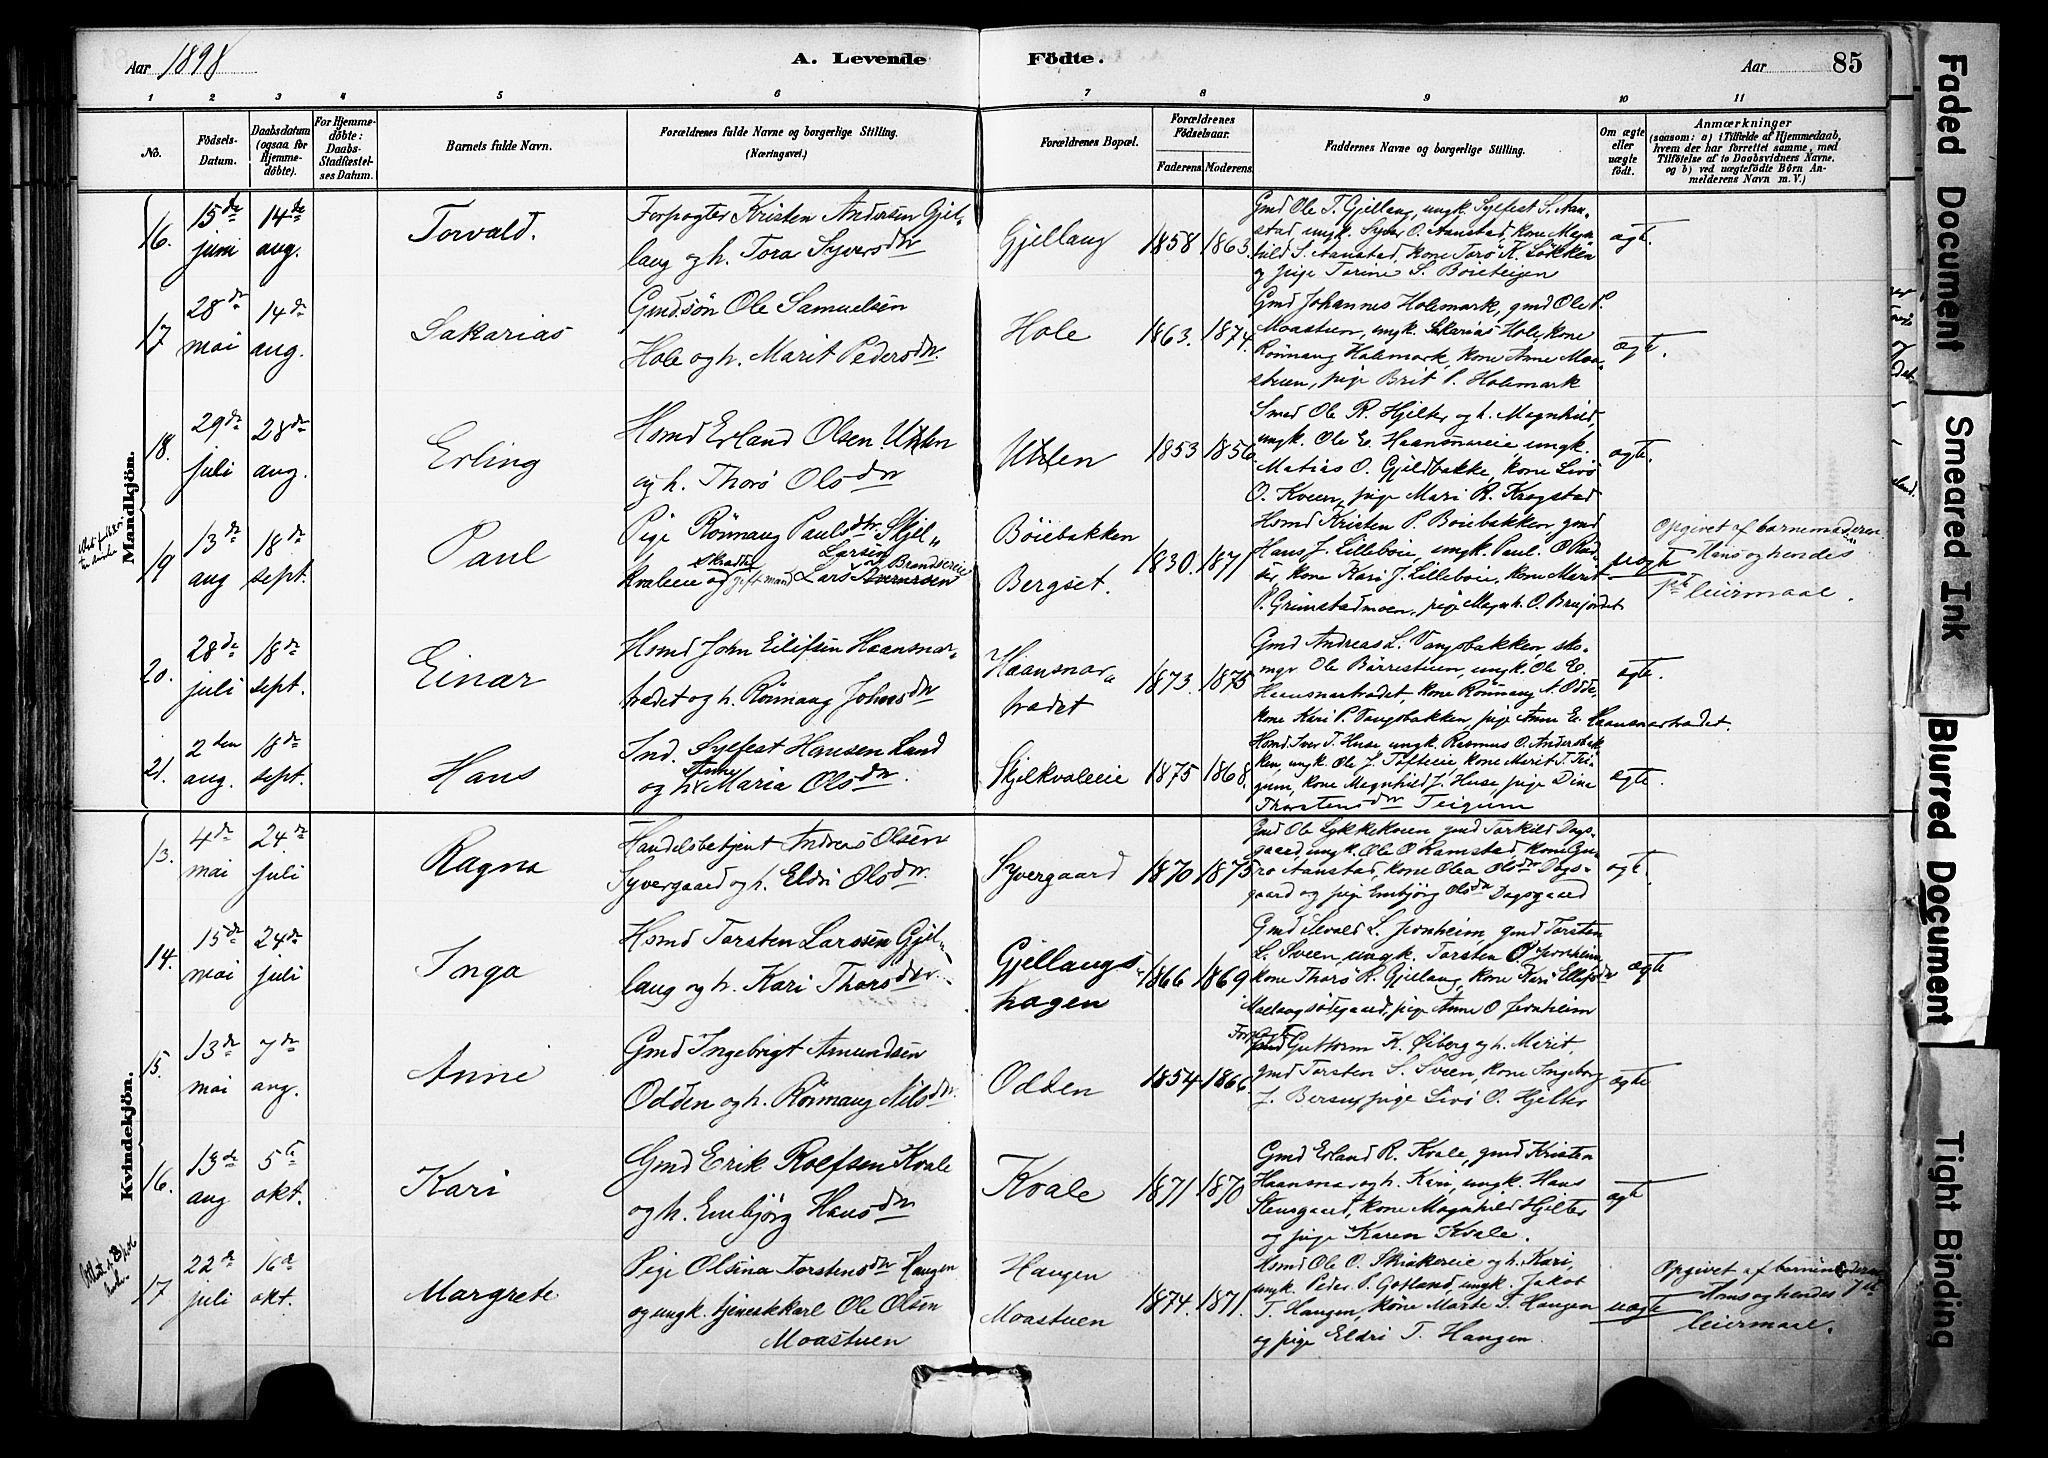 Aar 1898
A. Levende
Födte.
Aar
85
1 2 3 4 5 6 7 8 9 10 11
No.
Födsels-
Datum.
Daabsdatum
(ogsaa for
Hjemme-
döbte).
For Hjemme-
döbte:
Daabs-
Stadfæstel-
ses Datum.
Barnets fulde Navn.
Forældrenes fulde Navne og borgerlige Stilling.
(Næringsvei.)
Forældrenes Bopæl.
Forældrenes
Födselsaar.
Faderens. Moderens.
Faddernes Navne og borgerlige Stilling.
Om ægte
eller
uægte
födt.
Anmærkninger
(saasom: a) i Tilfælde af Hjemmedaab,
hvem der har forrettet samme, med
Tilföielse af to Daabsvidners Navne,
og b) ved uægtefödte Börn An-
melderens Navn m. V.)
Mandkjön.
16.
15de
juni
14de
aug.
Torvald.
Forpagter Kristen Andersen Gjel-
laug og h. Tora Syversdtr
Gjellaug
1858 1863.
Gmd Ole T. Gjellaug, ungk. Sylfest S. Aan-
stad ungk. Syver O. Aanstad, kone Magn-
hild S. Aanstad, kone Torö K. Lökken
og pige Torine S. Böieteigen
ægte.
17
28de
mai
14de
aug.
Sakarias
Gmdsön Ole Samuelsen
Hole og h. Marit Pedersdtr.
Hole
1863. 1874.
Gmd Johannes Holemark, gmd Ole P.
Moastuen, ungk. Sakarias Hole, kone
Rönnaug Holemark, kone Anne Moa-
stuen, pige Brit P. Holemark
ægte.
18.
29de
juli
28de
aug.
Erling
Hsmd Erland Olsen Uhlen
og h. Thorö Olsdtr
Uhlen
1853 1856.
Smed Ole R. Hjelter og h. Magnhild,
ungk. Ole E. Haansnareie, ungk.
Matias O. Gjeldbakke, kone Sivö
O. Kveen, pige Mari R. Krogstad
ægte.
19
13de
aug
18de
sept.
Paul
Pige Rönnaug Paulsdtr. Skjel-
kvaleie og Skradder gift mand Lars Larsen Brandsereie
Böiebakken
Bergset.
1830. 1871
Hsmd Kristen P. Böiebakken, gmd
Hans J. Lilleböie, ungk. Paul O. Rud-
, kone Kari J. Lilleböie, kone Marit
P. Grimstadmoen, pige Magnh. O. Brujordet
uægte
Opgivet af barnemoderen
Hans og hendes
1ste leiermaal.
20.
28de
juli
18de
sept.
Einar
Hsmd John Eilifsen Haansnar-
trædet og h. Rönnaug Johnsdtr
Haansnar-
trædet
1873. 1875
Gmd Andreas L. Vangsbakken, sko-
mgr. Ole Börrestuen, ungk. Ole E.
Haansnartrædet, kone Rönnaug A. Odde,
kone Kari P. Vangsbakken, pige Anne E. Haansnartrædet.
ægte.
21.
2den
aug.
18de
sept.
Hans
Ind. Sylfest Hansen Lund
og h. Anne Maria Olsdtr.
Skjelkvaleie
1875 1868.
Hsmd. Iver T. Huse, ungk. Rasmus O. Andersbak-
ken, ungk. Ole J. Tofteeie, kone Marit T. Tei-
gum, kone Magnhild J. Huse, pige Dina
Thorstensdtr Teigum
ægte.
Kvindekjön.
13.
4de
mai
24de
juli
Ragna
Handelsbetjent Andreas Olsen
Syvergaard og h. Eldri Olsdtr.
Syvergaard
1870 1875
Gmd Ole Lykkekveen, gmd Torkild Dags-
gaard, ungk. Ole O. Ramstad, kone Gu-
ro Aanstad, kone Olea Olsdtr Dags-
gaard og pige Embjörg Olsdtr Dagsgaard
ægte.
14.
15de
mai
24de
juli
Inga
Hsmd Torsten Larssen Gjel-
laug og h. Kari Thorsdtr.
Gjellaugs-
hagen
1866 1869
Gmd Sevald L. Jernheim, gmd Torsten
L. Sveen, ungk. Torsten O. Jernheim,
kone Thorö R. Gjellaug, kone Kari Ellefsdtr
, pige Anne O. Jernheim
ægte
15.
13de
mai
7de
aug.
Anne
Gmd Ingebrigt Amundsen
Odden og h. Rönnaug Nilsdtr.
Odden
1854 1866.
Guttorm K. Öiberg og h. Marit,
gmd Torsten S. Sveen, kone Ingeborg
J. Bersug, pige Sivö O. Hjelter
ægte
16.
13de
aug
5te
okt.
Kari
Gmd Erik Rolfsen Kvale
og h. Embjörg Hansdtr
Kvale
1871 1870
Gmd Erland R. Kvale, gmd Kristen
Haansnar og h. Kari, ungk. Hans
Stensgaard, kone Magnhild Hjelter
og pige Karen Kvale.
ægte
17
22de
juli
16de
okt.
Margrete
Pige Olsina Torstensdtr Haugen
og ungk. tjenestekarl Ole Olsen
Moastuen
Haugen
Moastuen
1874. 1871.
Hsmd Ole O. Skiakereie og h. Kari,
ungk. Peder P. Gotland, ungk. Jakob
T. Haugen, kone Marte T. Haugen
og pige Eldri T. Haugen.
uægte
Opgivet af barnemoderen
Hans og hendes 1ste
leiermaal.
Faded Document
Smeared Ink
Blurred Document
Tight Binding